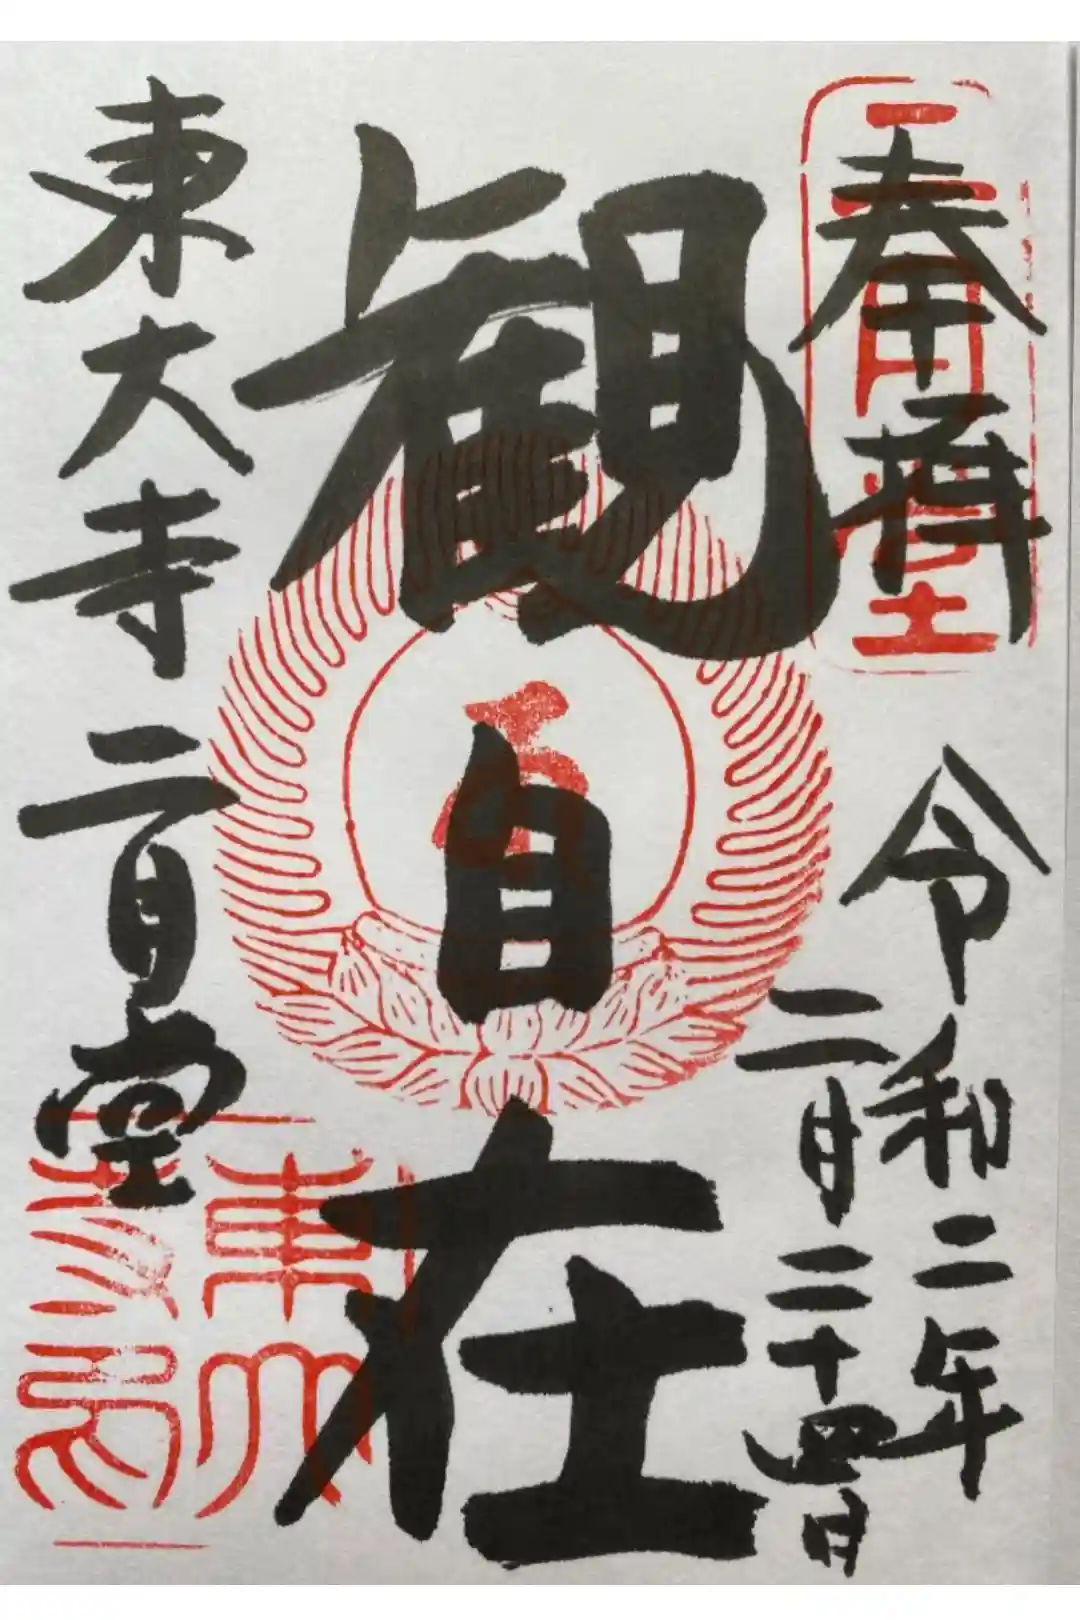 奉拝
二月堂
令和二年
二月二十四日
観自在
東大寺二月堂